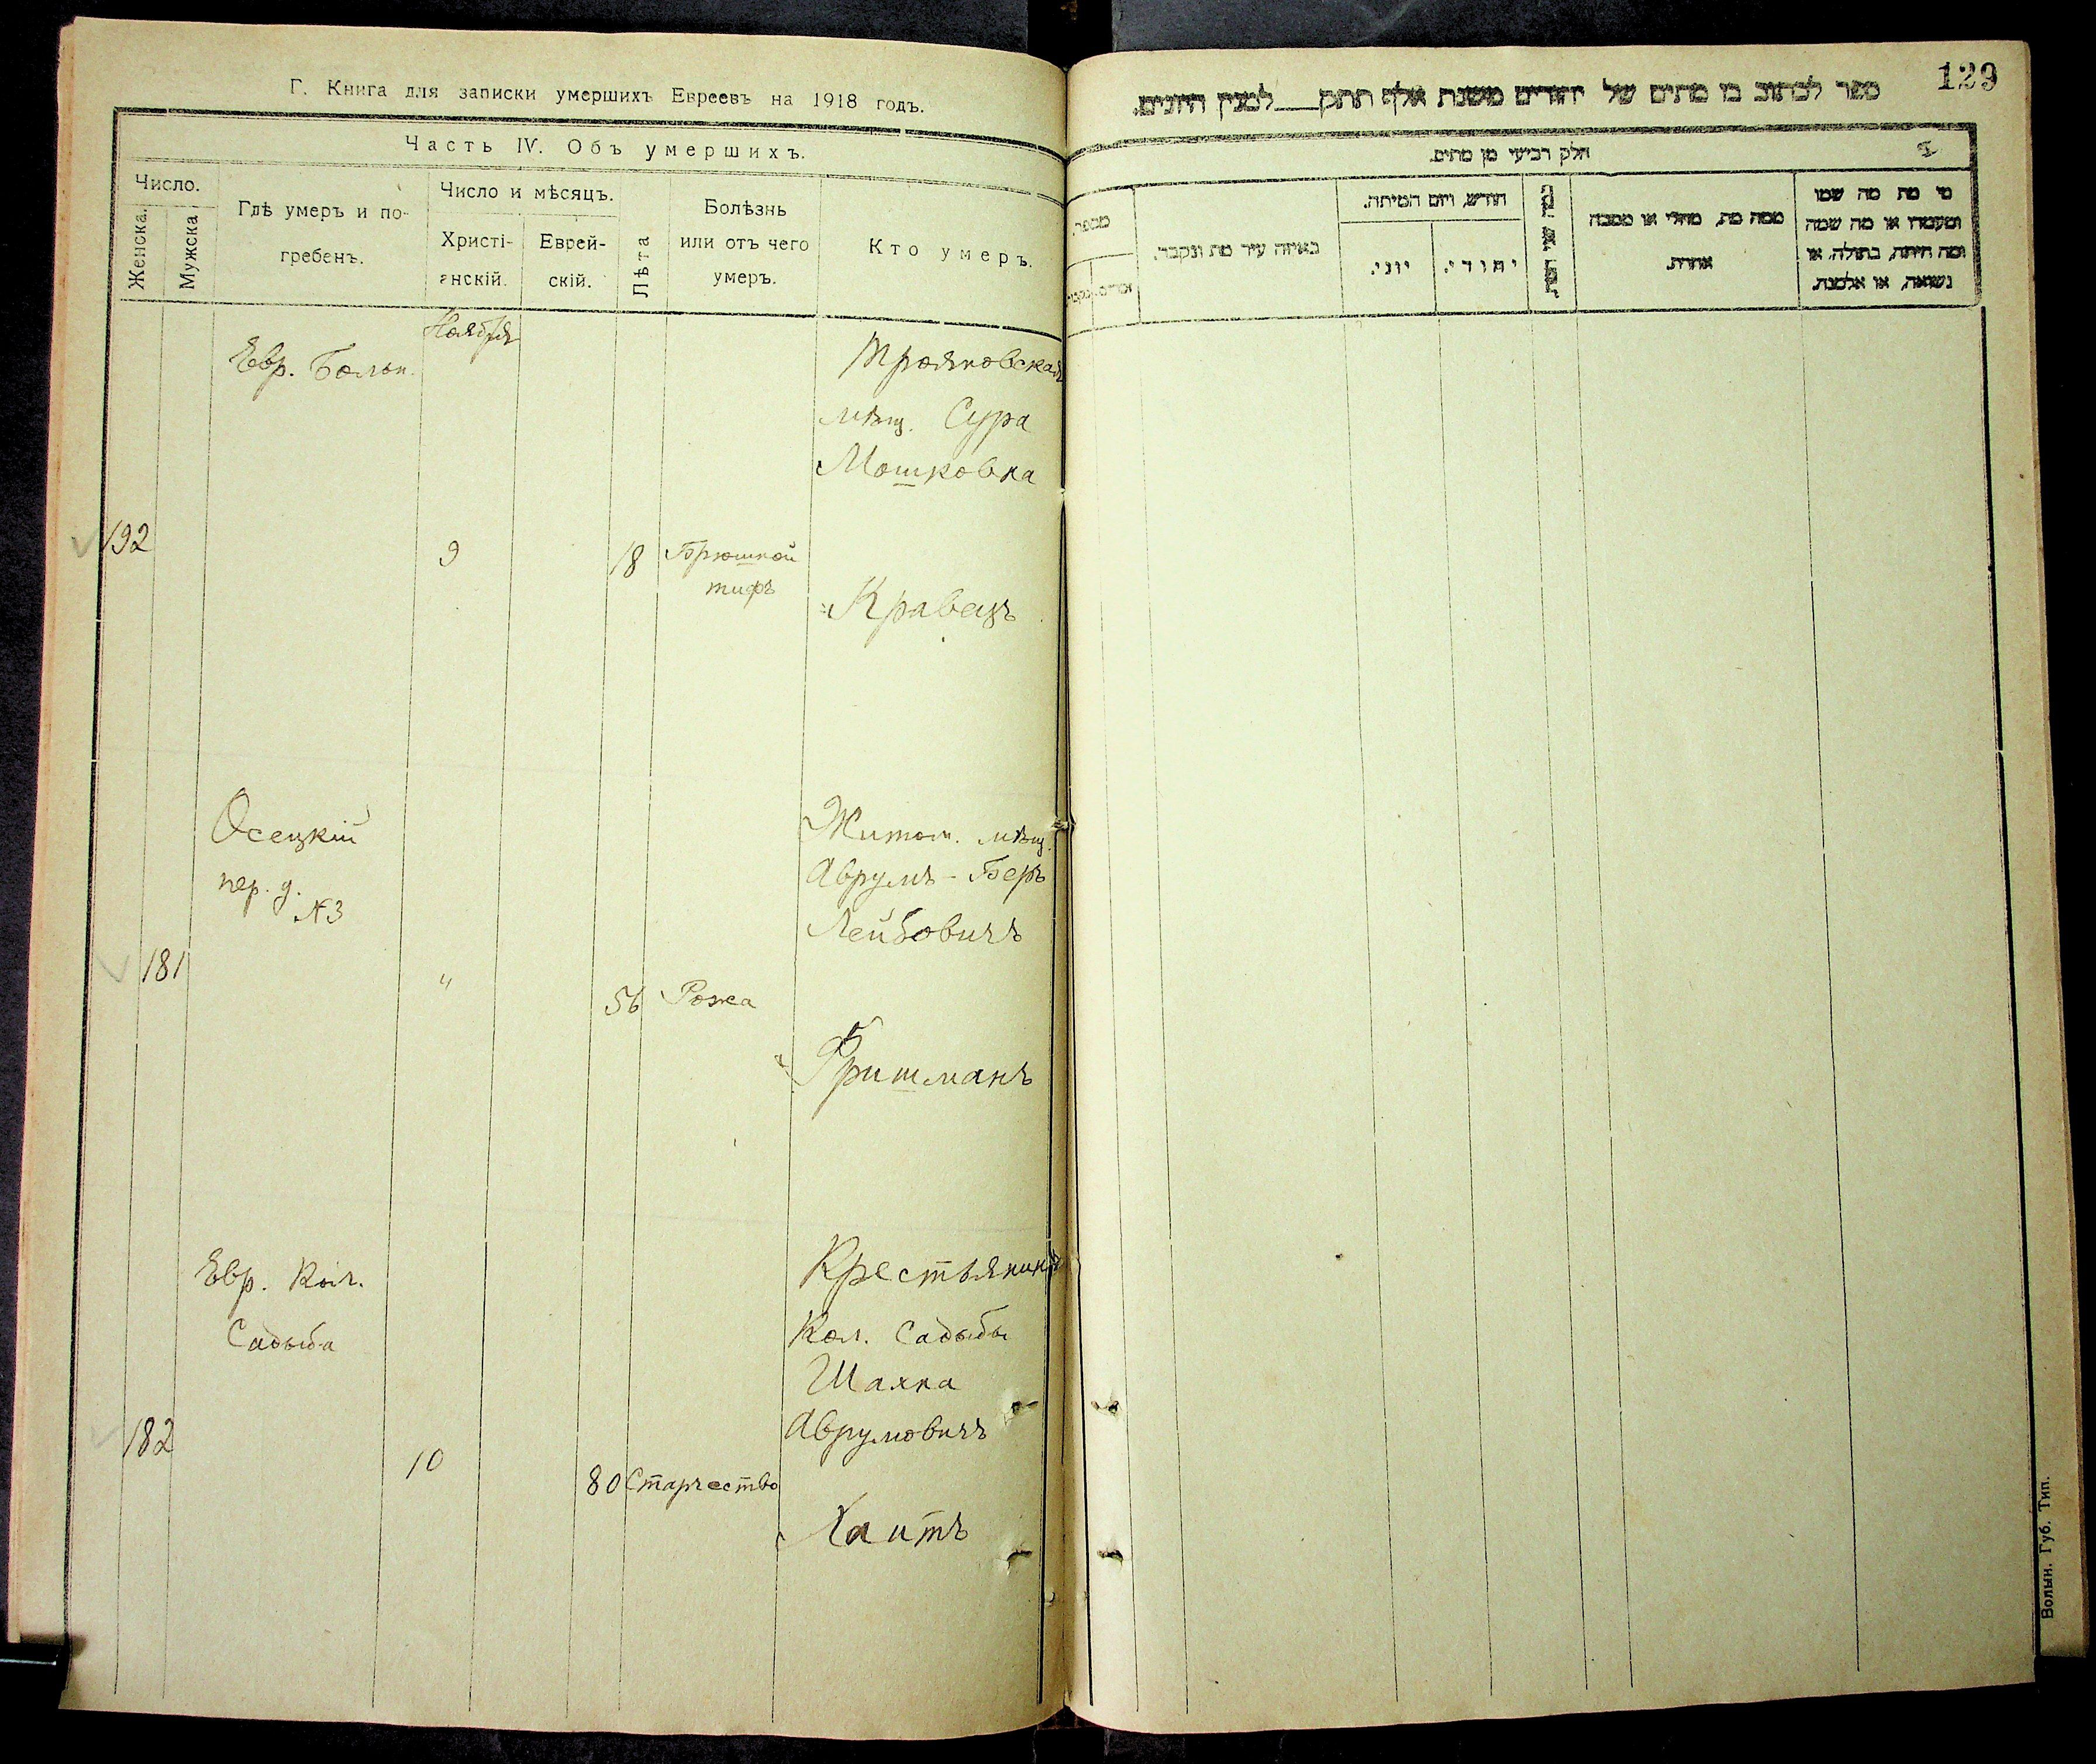 Г. Книга для записки умершихъ Евреевъ на 1918 годъ.
Часть IV. Объ умершихъ.
Число.
Женска.
Мужска
Гдѣ умеръ и по-
гребенъ.
Число и мѣсяцъ.
Христі-
анскій.
Еврей-
скій.
Лѣта
Болѣзнь
или отъ чего
умеръ.
Кто умеръ.
Ноября
Евр. Больн.
Трояновская
мѣщ. Сура
Мошковна
192
9
18
Брюшной
тифъ
Кравецъ
Осецкій
пер. д.
№3
Житом. мѣщ.
Аврумъ-Беръ
Лейбовичъ
181
"
56
Рожа
Фришманъ
Евр. Кол.
Садыба
Крестьянинъ
Кол. Садыбы
Шаяна
Аврумовичъ
182
10
80
Старчество
Хаитъ
129
ספר לכתוב בו מתים של יהודים משנת אלף תתק___למנין היונים.
חלק רביעי מן מתים.
מי מת מה שמו
ומעמדו או מה שמה
ומה היתה, בתולה, או
נשואה, או אלמנת.
ממה מת, מחלי או מסבה
אחרת.
חודש, ויום המיתה.
יהודי.
יוני.
באיזה עיר מת ונקבר.
מספר.
Волын. Губ. Тип.